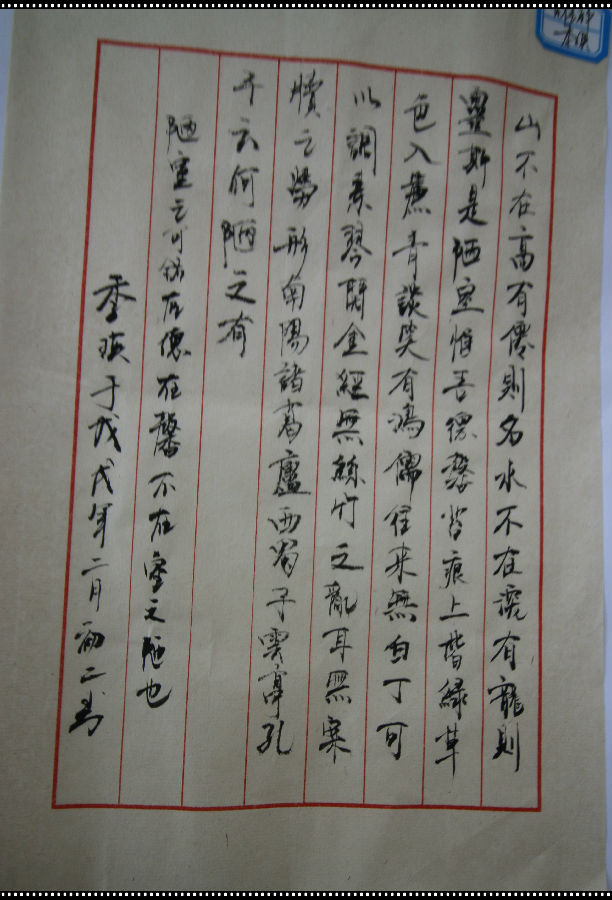 山不在高有僊則名水不在深有龍則
靈斯是陋室惟吾德馨苔痕上階綠草
色入簾青談笑有鴻儒往来無白丁可
以調素琴閱金經無絲竹之亂耳無案
牘之勞形南陽諸葛廬西蜀子雲亭孔
子云何陋之有
陋室之可銘在德在馨不在室之陋也
于戊戌年二月初二书